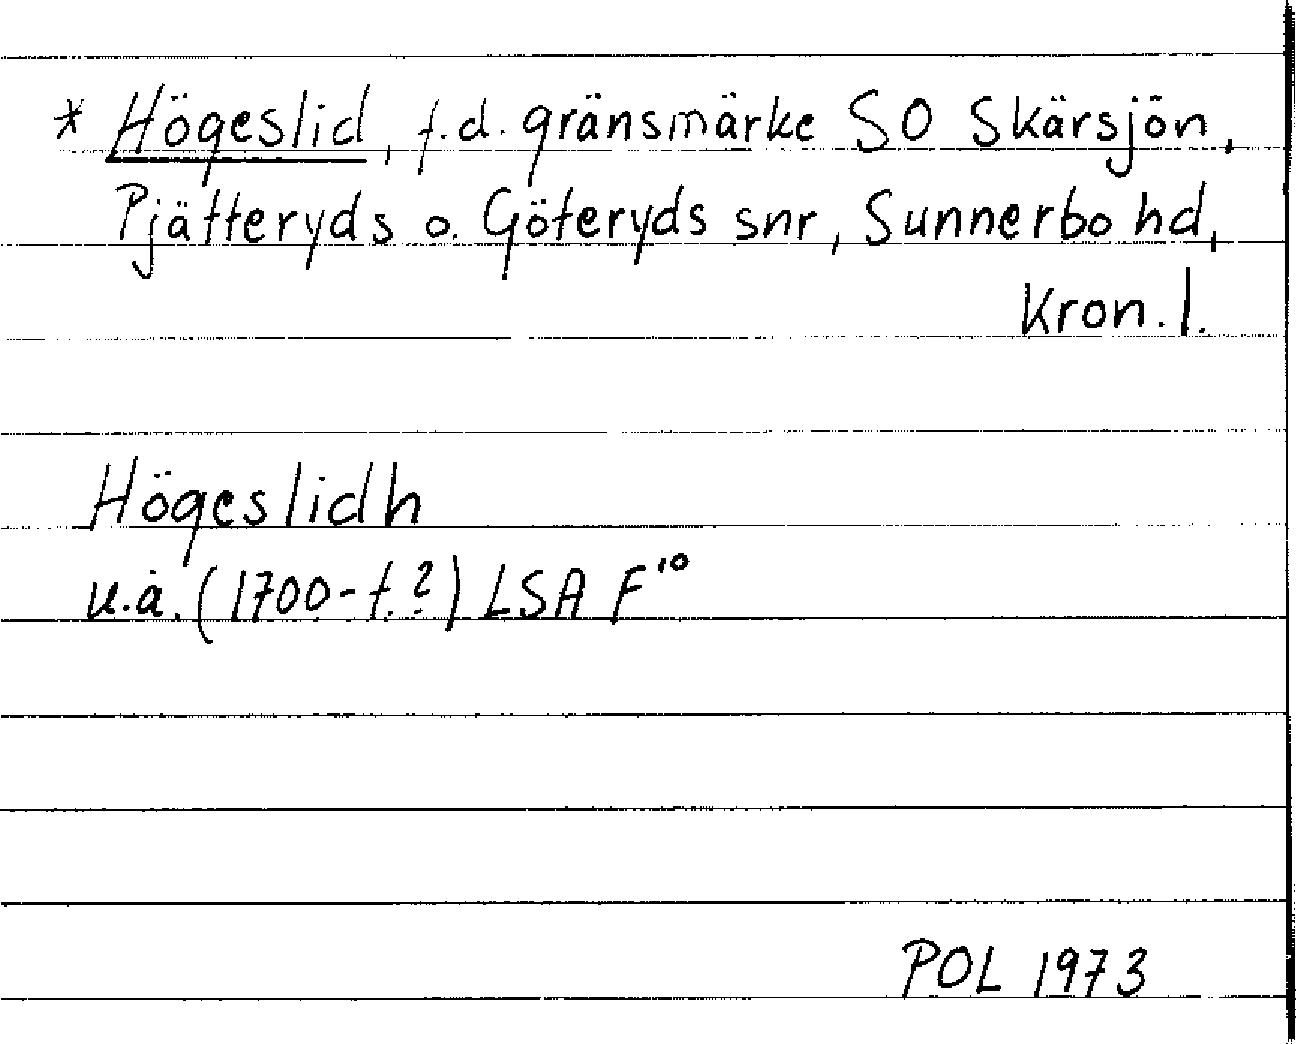 * Högeslid, f.d. gränsmärke SO Skärsjön,
Pjätteryds o. Göteryds snr, Sunnerbo hd,
Kron. l.
Högeslidh
u.å. (1700-t.?) LSA F¹⁰
POL 1973